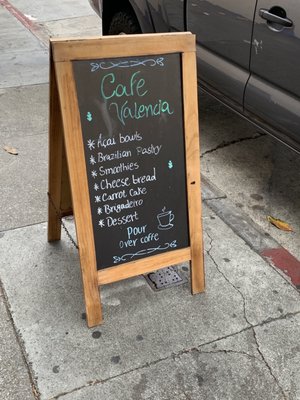 Cafe
Valencia
* Açai bowls
* Brazilian Pastry
* Smoothies
* Cheese bread
* Carrot Cake
* Brigadeiro
* Dessert
Pour
Over coffee